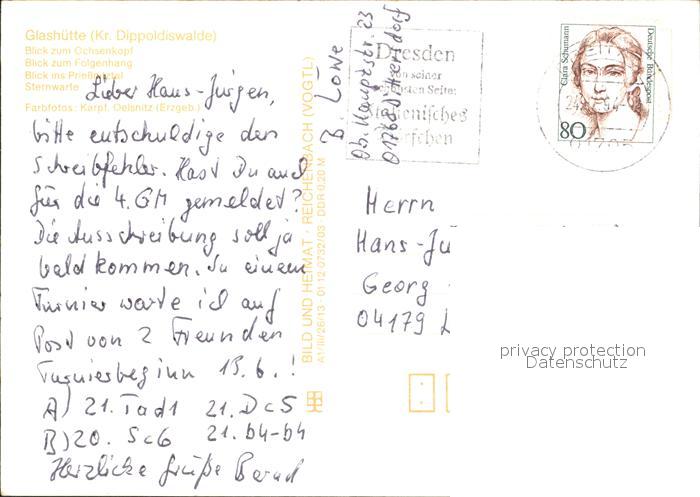 Glashütte (Kr. Dippoldiswalde)
Blick zum Ochsenkopf
Blick zum Folgenhang
Blick ins Prießnitztal
Sternwarte
Farbfotos: Karpf, Oelsnitz (Erzgeb.)
Lieber Hans-Jürgen,
bitte entschuldige den
Schreibfehler. Hast Du auch
für die 4. GM gemeldet?
Die Ausschreibung soll ja
bald kommen. In einem
Turnier warte ich auf
Post von 2 Freunden
Turnierbeginn 15.6.!
A) 21. Tad1 21. Dc5
B) 20. Sc6 21. b4-b4
Herzliche Grüße Bernd
BILD UND HEIMAT · REICHENBACH (VOGTL)
A1/III/26/13 · 01 12 0732/03 · DDR 0,20 M
B. Löwe
Ob. Hauptstr. 23
01768
Dresden
von seiner
schönsten Seite:
Deutsche Bundespost
Clara Schumann
80
Herrn
Hans-Jü
Georg
04179 L
privacy protection
Datenschutz